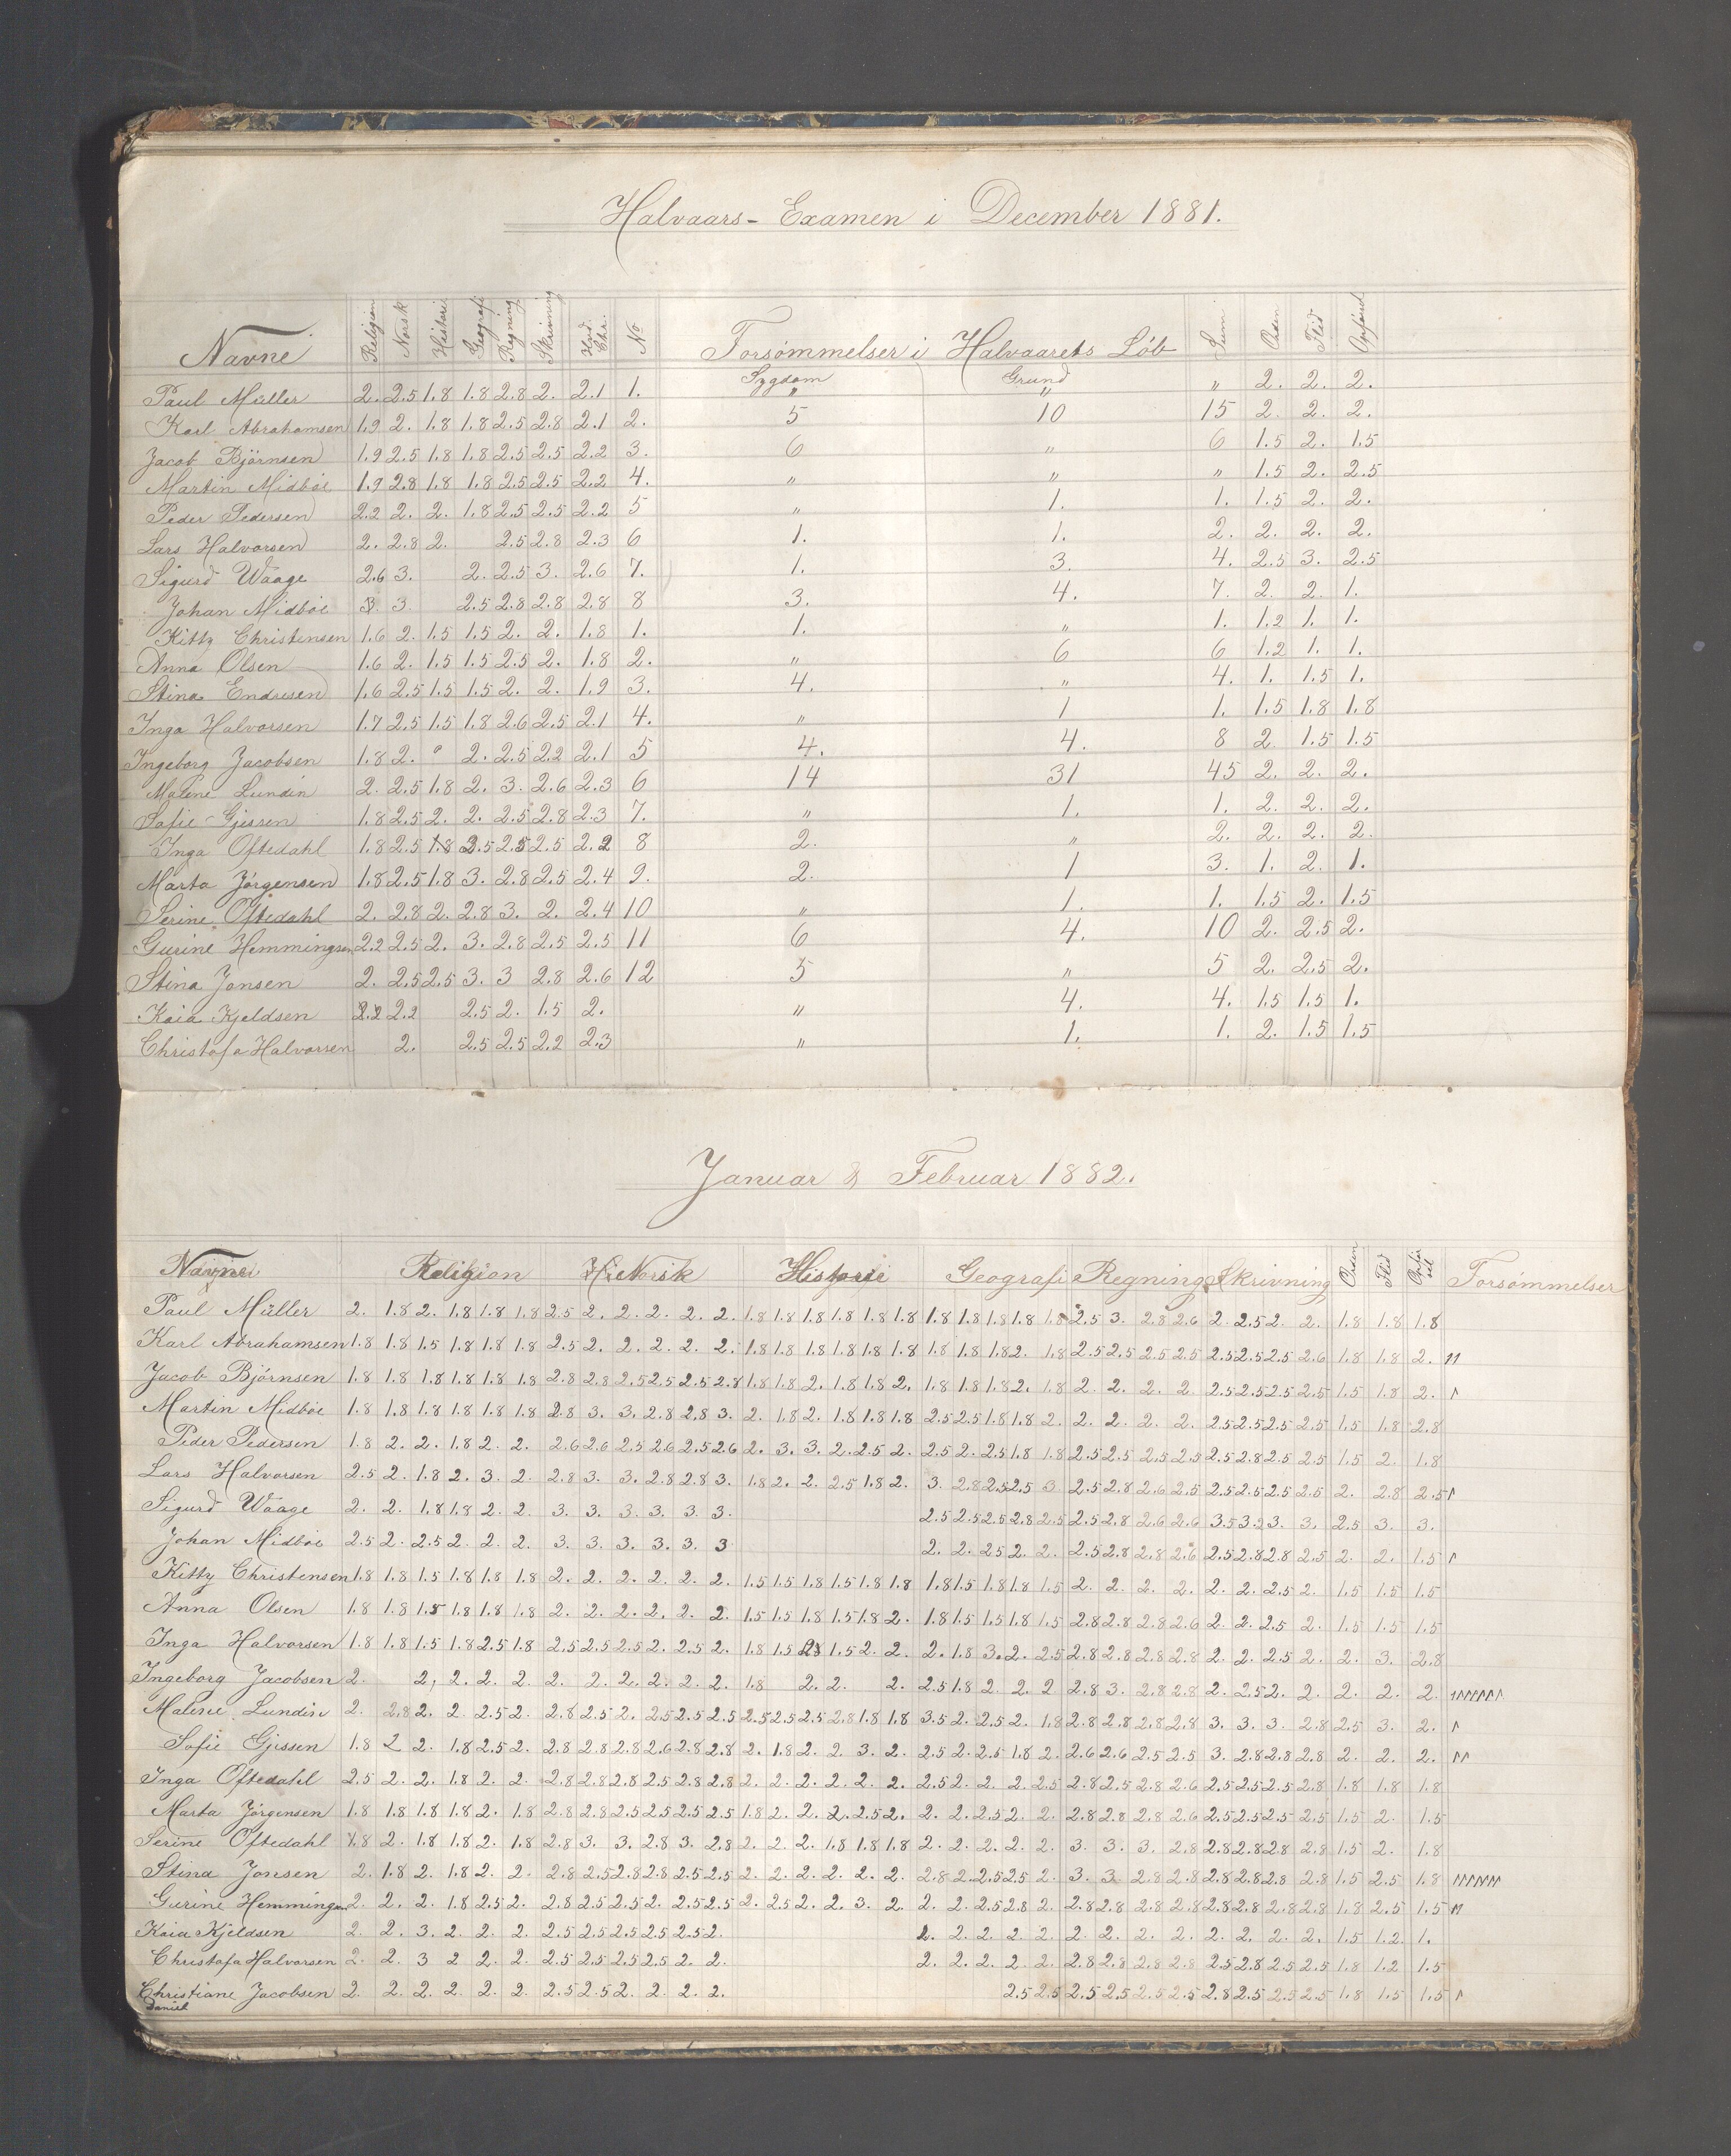 Halvaars-Examen i December 1881.
Navne Religion Norsk Historie Geografi Regning Skrivning Hvd. Chr. No Forsømmelser i Halvaarets Løb Sum Orden Flid Opførsel
Sygdom Grund
Paul Müller 2. 2.5 1.8 1.8 2.8 2. 2.1 1. " " " 2. 2. 2.
Karl Abrahamsen 1.9 2. 1.8 1.8 2.5 2.8 2.1 2. 5 10 15 2. 2. 2.
Jacob Bjørnsen 1.9 2.5 1.8 1.8 2.5 2.5 2.2 3. 6 " 6 1.5 2. 1.5
Martin Midbøe 1.9 2.8 1.8 1.8 2.5 2.5 2.2 4. " " " 1.5 2. 2.5
Peder Pedersen 2.2 2. 2. 1.8 2.5 2.5 2.2 5 " 1. 1. 1.5 2. 2.
Lars Halvorsen 2. 2.8 2. 2.5 2.8 2.3 6 1. 1. 2. 2. 2. 2.
Sigurd Waage 2.6 3. 2. 2.5 3. 2.6 7. 1. 3. 4. 2.5 3. 2.5
Johan Midbøe 3. 3. 2.5 2.8 2.8 2.8 8 3. 4. 7. 2. 2. 1.
Kitty Christensen 1.6 2. 1.5 1.5 2. 2. 1.8 1. 1. " 1. 1.2 1. 1.
Anna Olsen 1.6 2. 1.5 1.5 2.5 2. 1.8 2. " 6 6 1.2 1. 1.
Stina Endresen 1.6 2.5 1.5 1.5 2. 2. 1.9 3. 4. " 4. 1. 1.5 1.
Inga Halvorsen 1.7 2.5 1.5 1.8 2.6 2.5 2.1 4. " 1 1. 1.5 1.8 1.8
Ingeborg Jacobsen 1.8 2. " 2. 2.5 2.2 2.1 5 4. 4. 8 2. 1.5 1.5
Malene Lundin 2. 2.5 1.8 2. 3. 2.6 2.3 6 14 31 45 2. 2. 2.
Sofie Gjessen 1.8 2.5 2. 2. 2.5 2.8 2.3 7. " 1. 1. 2. 2. 2.
Inga Oftedahl 1.8 2.5 1.8 2.5 2.5 2.5 2.2 8 2. " 2. 2. 2. 2.
Marta Jørgensen 1.8 2.5 1.8 3. 2.8 2.5 2.4 9. 2. 1 3. 1. 2. 1.
Serine Oftedahl 2. 2.8 2. 2.8 3. 2. 2.4 10 " 1. 1. 1.5 2. 1.5
Gurine Hemmingsen 2.2 2.5 2. 3. 2.8 2.5 2.5 11 6 4. 10 2. 2.5 2.
Stina Jonsen 2. 2.5 2.5 3. 3 2.8 2.6 12 5 " 5 2. 2.5 2.
Kaia Kjeldsen 2.2 2.2 2.5 2. 1.5 2. " 4. 4. 1.5 1.5 1.
Christofa Halvorsen 2. 2.5 2.5 2.2 2.3 " 1. 1. 2. 1.5 1.5
Januar & Februar 1882.
Navne Religion Norsk Historie Geografi Regning Skrivning Orden Flid Opførsel Forsømmelser
Paul Müller 2. 1.8 2. 1.8 1.8 1.8 2.5 2. 2. 2. 2. 2. 1.8 1.8 1.8 1.8 1.8 1.8 1.8 1.8 1.8 1.8 1.8 2.5 3. 2.8 2.6 2. 2.5 2. 2. 1.8 1.8 1.8
Karl Abrahamsen 1.8 1.8 1.5 1.8 1.8 1.8 2.5 2. 2. 2. 2. 2. 1.8 1.8 1.8 1.8 1.8 1.8 1.8 1.8 1.8 2. 1.8 2.5 2.5 2.5 2.5 2.5 2.5 2.5 2.6 1.8 1.8 2. 11
Jacob Bjørnsen 1.8 1.8 1.8 1.8 1.8 1.8 2.8 2.8 2.5 2.5 2.5 2.8 1.8 1.8 2. 1.8 1.8 2. 1.8 1.8 1.8 2. 1.8 2. 2. 2. 2. 2.5 2.5 2.5 2.5 1.5 1.8 2. 1
Martin Midbøe 1.8 1.8 1.8 1.8 1.8 1.8 2.8 3. 3. 2.8 2.8 3. 2. 1.8 2. 1.8 1.8 1.8 2.5 2.5 1.8 1.8 2. 2. 2. 2. 2. 2.5 2.5 2.5 2.5 1.5 1.8 2.8
Peder Pedersen 1.8 2. 2. 1.8 2. 2. 2.6 2.6 2.5 2.6 2.5 2.6 2. 3. 3. 2. 2.5 2. 2.5 2. 2.5 1.8 1.8 2.5 2.5 2.5 2.5 2.5 2.8 2.5 2.5 1.5 2. 1.8
Lars Halvorsen 2.5 2. 1.8 2. 3. 2. 2.8 3. 3. 2.8 2.8 3. 1.8 2. 2. 2.5 1.8 2. 3. 2.8 2.5 2.5 3 2.5 2.8 2.6 2.5 2.5 2.5 2.5 2.5 2. 2.8 2.5 1
Sigurd Waage 2. 2. 1.8 1.8 2. 2. 3. 3. 3. 3. 3. 3. 2.5 2.5 2.5 2.8 2.5 2.5 2.8 2.6 2.6 3.5 3.2 3. 3. 2.5 3. 3.
Johan Midbøe 2.5 2. 2.5 2. 2. 2. 3. 3. 3. 3. 3. 3 2. 2. 2.5 2. 2. 2.5 2.8 2.8 2.6 2.5 2.8 2.8 2.5 2. 2. 1.5 1
Kitty Christensen 1.8 1.8 1.5 1.8 1.8 1.8 2. 2. 2. 2. 2. 2. 1.5 1.5 1.8 1.5 1.8 1.8 1.8 1.5 1.8 1.8 1.5 2. 2. 2. 2. 2. 2. 2.5 2. 1.5 1.5 1.5
Anna Olsen 1.8 1.8 1.5 1.8 1.8 1.8 2. 2. 2. 2. 2. 2. 1.5 1.5 1.8 1.5 1.8 2. 1.8 1.5 1.5 1.8 1.5 2.8 2.8 2.8 2.6 2. 2. 2.5 2. 1.5 1.5 1.5
Inga Halvorsen 1.8 1.8 1.5 1.8 2.5 1.8 2.5 2.5 2.5 2. 2.5 2. 1.8 1.5 1.5 2. 2. 2. 1.8 3. 2. 2.5 2.8 2.8 2.8 2.8 2. 2. 2.5 2. 2. 3. 2.8
Ingeborg Jacobsen 2. 2, 2. 2. 2. 2. 2. 2. 2. 2. 2. 1.8 2. 2. 2. 2.5 1.8 2. 2. 2 2.8 3. 2.8 2.8 2. 2.5 2. 2. 2. 2. 2. 1111111
Malene Lundin 2. 2.8 2. 2. 2.5 2. 2.8 2.5 2. 2.5 2.5 2.5 2.5 2.5 2.5 2.8 1.8 1.8 3.5 2. 2.5 2. 1.8 2.8 2.8 2.8 2.8 3. 3. 3. 2.8 2.5 3. 2. 1
Sofie Gjessen 1.8 2 2. 1.8 2.5 2. 2.8 2.8 2.8 2.6 2.8 2.8 2. 1.8 2. 2. 3. 2. 2.5 2. 2.5 1.8 2. 2.6 2.6 2.5 2.5 3. 2.8 2.8 2.8 2. 2. 2. 11
Inga Oftedahl 2.5 2. 2. 1.8 2. 2. 2.8 2.8 2.8 2.5 2.8 2.8 2. 2. 2. 2. 2. 2. 2.5 2. 2. 2. 2.5 2.8 2.5 2.8 2.6 2.5 2.5 2.5 2.8 1.8 1.8 1.8
Marta Jørgensen 1.8 1.8 1.8 1.8 2. 1.8 2.8 2.8 2.5 2.5 2.5 2.5 1.8 2. 2. 2. 2.5 2. 2. 2. 2.5 2. 2. 2.8 2.8 2.8 2.6 2.5 2.5 2.5 2.5 1.5 2. 1.5
Serine Oftedahl 1.8 2. 1.8 1.8 2. 1.8 2.8 3. 3. 2.8 3. 2.8 2. 2. 2. 1.8 1.8 1.8 2. 2. 2. 2. 2. 3. 3. 3. 2.8 2.8 2.8 2.8 2.8 1.5 2. 1.8
Stina Jonsen 2. 1.8 2. 1.8 2. 2. 2.8 2.5 2.8 2.8 2.5 2.5 2. 2. 2. 2. 2. 2. 2.8 2. 2.5 2.5 2. 3. 3. 2.8 2.8 2.8 2.8 2.8 2.8 1.5 2.5 1.8 111111
Gurine Hemmingsen 2. 2. 2. 1.8 2.5 2. 2.8 2.5 2.5 2. 2.5 2.5 2. 2.5 2. 2. 3. 2. 2. 2. 2.5 2.8 2. 2.8 2.8 2.8 2.8 2.8 2.8 2.8 2.8 1.8 2.5 1.5 11
Kaia Kjeldsen 2. 2. 3. 2. 2. 2. 2.5 2.5 2.5 2.5 2.5 2. 2. 2. 2. 2. 2. 2. 2. 2. 2. 2. 2. 2. 2. 1.5 1.2 1.
Christofa Halvorsen 2. 2. 3 2 2. 2. 2.5 2.5 2.5 2.5 2. 2. 2. 2. 2. 2. 2. 2.8 2.8 2.8 2.8 2.5 2.8 2.5 2.5 1.8 1.2 1.5
Christiane Jacobsen 2. 2. 2. 2. 2. 2. 2.5 2.5 2. 2. 2. 2. 2.5 2.5 2.5 2.5 2.5 2.5 2.8 2.5 2.5 2.5 1.8 1.5 1.5 1
Daniel